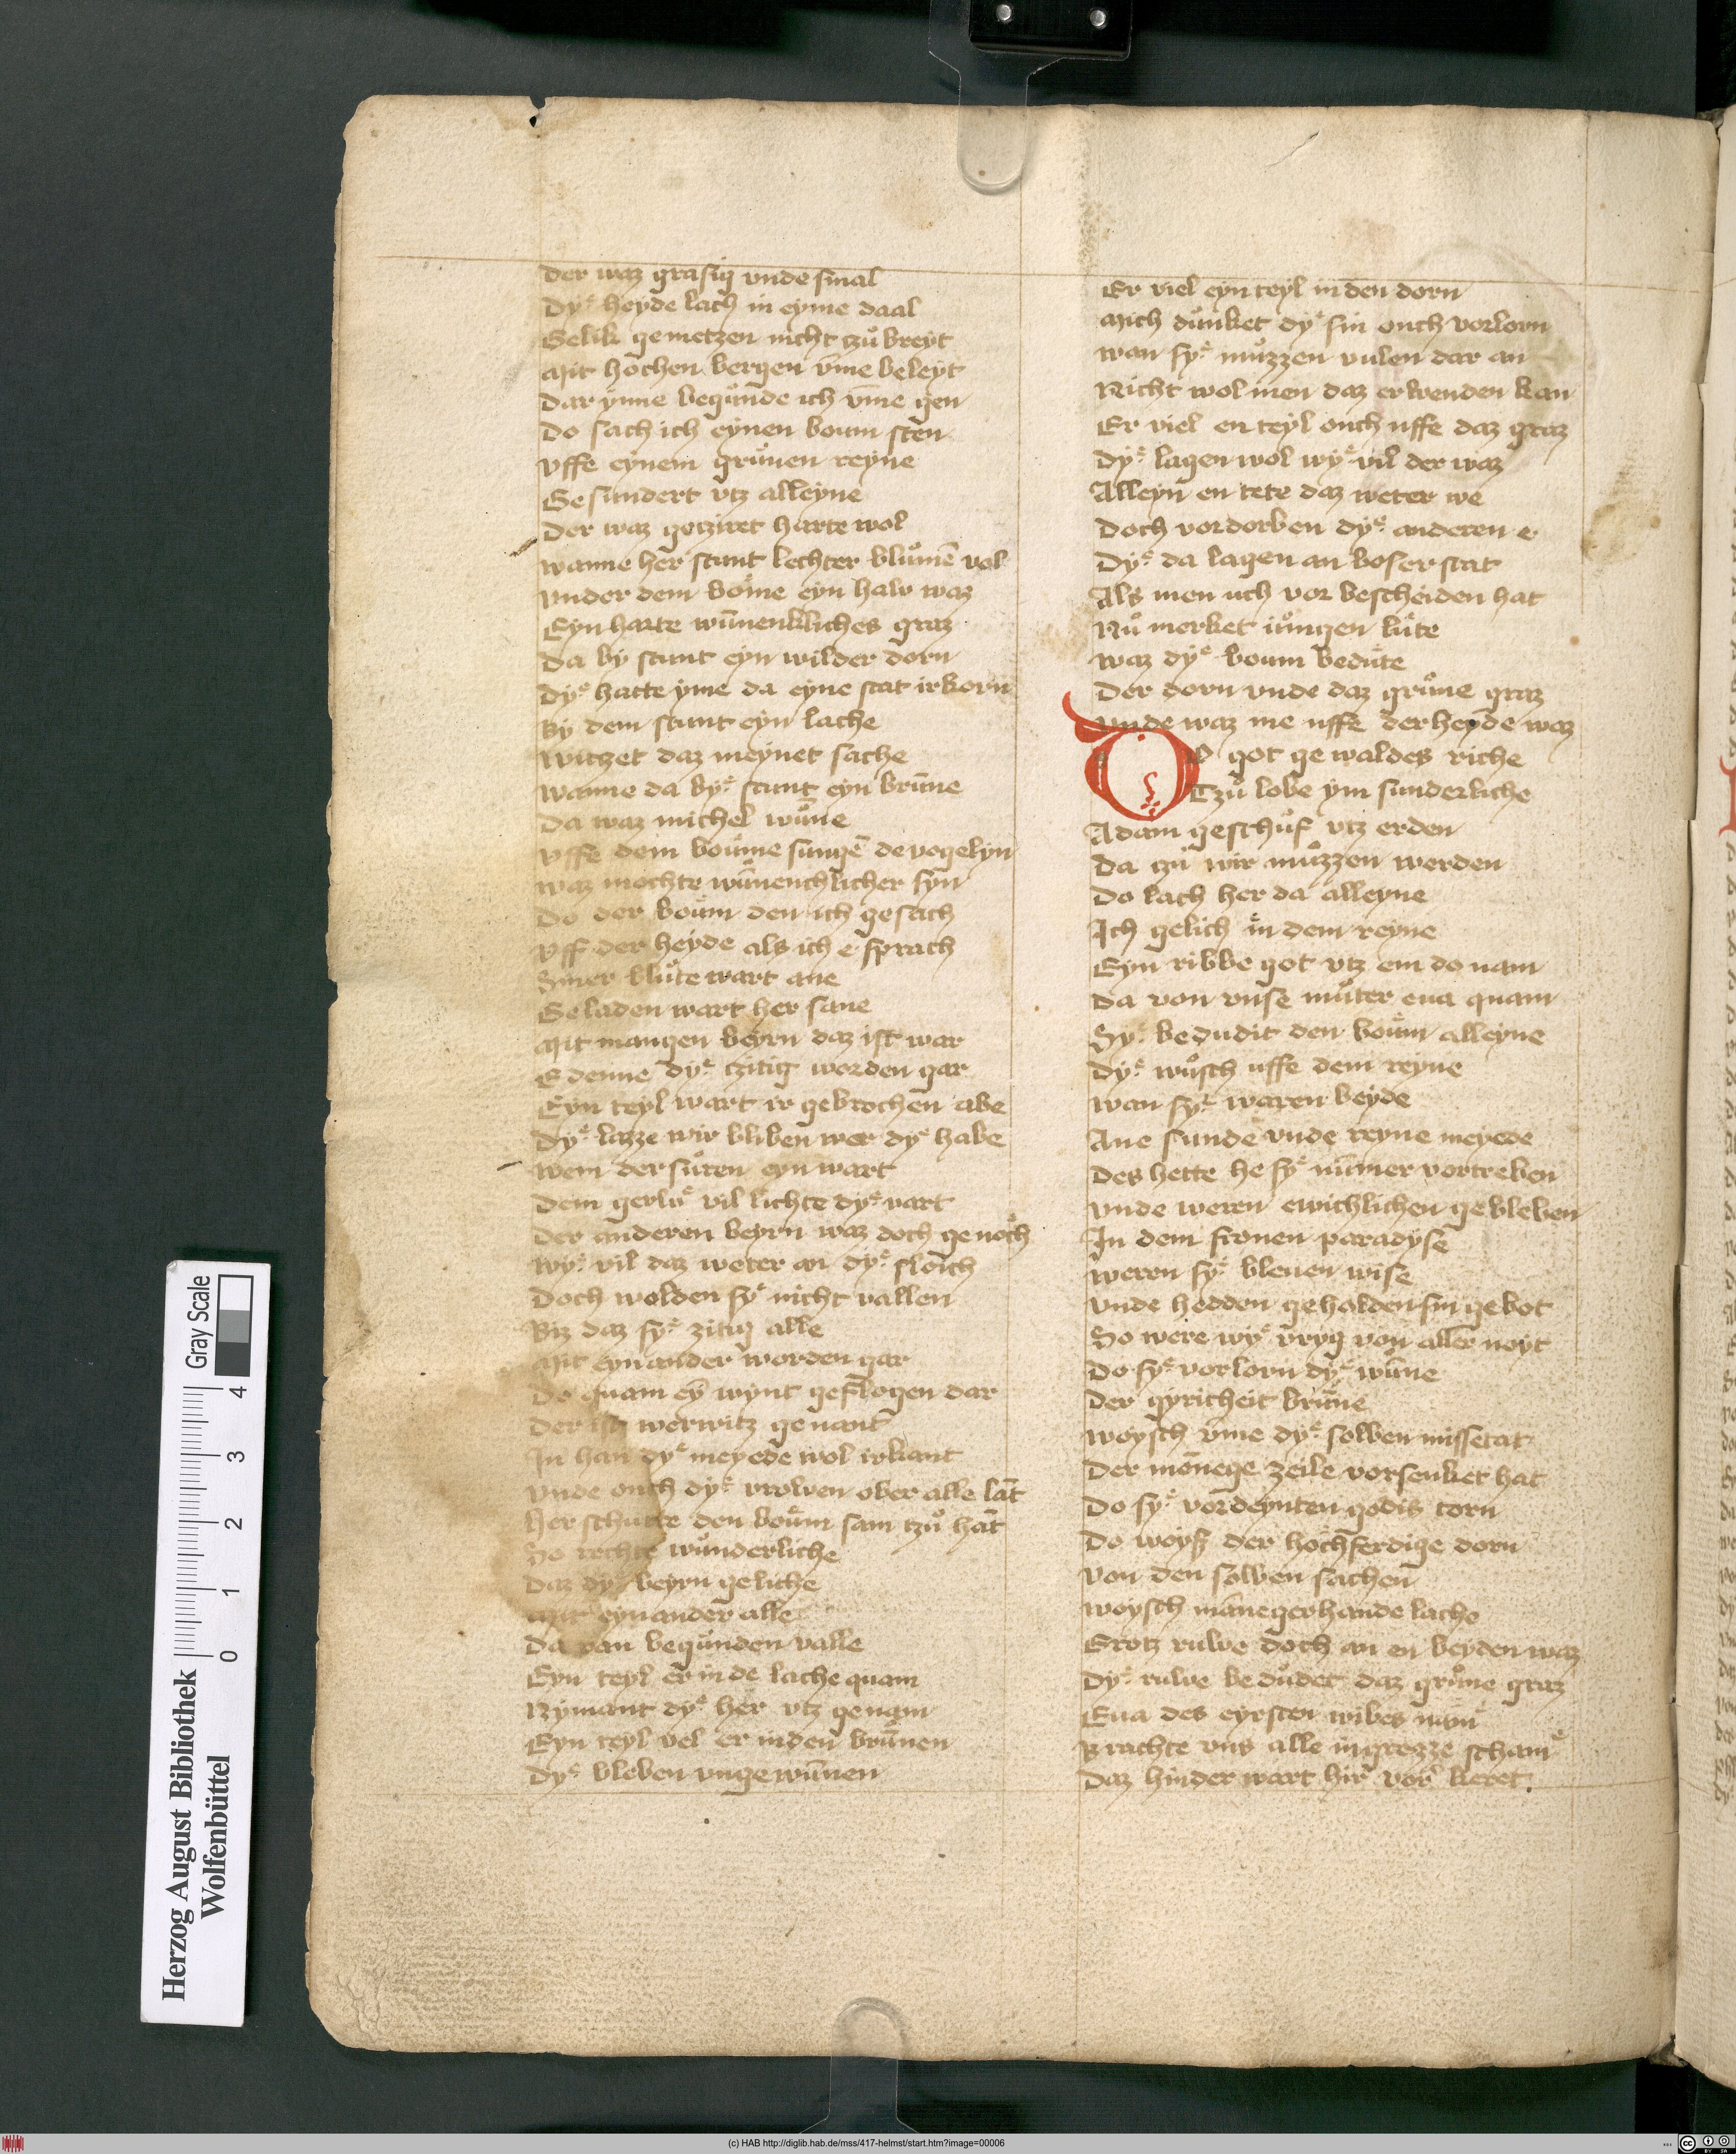 Der waz grasig vnde smal
Dyͤ heyde lach in eyme daal
Gelik gemetzen nicht tzuͦ breyt
Mit hochen bergen vm̄e beleyt
Dar ynne beguͦnde ich vm̄e gen
Do sach ich eynen boum sten
Vffe eynem gruͦnen reyne
Gesundert vtz alleyne
Der waz getziret harte wol
Wanne her stunt lechter bluͦmē vol
Vnder dem bome eyn halv waz
Eyn harte wūnenkliches graz
Da by stunt eyn wilder dorn
Dyͤ hatte yme da eyne stat irkorn
By dem stunt eyn lache
Witzet daz meynet sache
Wanne da byͤ stunt eyn brūne
Da waz michel wuͦne
Vffe dem bouͦme sungē de vogelyn
Waz mochte wūnenchlicher syn
Do der bouͦm den ich gesach
Vff der heyde als ich e sprach
Siner bluͦte wart ane
Geladen wart her sane
Mit mangen beyrn daz ist war
E denne dyͤ tzitig worden gar
Eyn teyl wart ir gebrochen abe
Dyͤ lazze wir bliben wer dyͤ habe
Wem der suͦren eyn wart
Dem gerlv vil lichte dyͤ vart
Der anderen beyrn waz doch genoch
Wyͤ vil daz weter an dyͤ sloich
Doch wolden syͤ nicht vallen
Biz daz syͤ zitig alle
Mit eynander worden gar
Do quam eȳ wynt geflogen dar
Der ist werwitz genant
In han dyͤ meyede wol irkant
Vnde ouch dyͤ vrowen ober alle lāt
Her schutte den bouͦm sam tzuͦ hāt
So rechte wuͦnderliche
Daz dyͤ beyrn geliche
Mit eynander alle
Da van beguͦnden valle
Eyn teyl er in de lache quam
Nymant dyͤ her vtz genam
Eyn teyl vel er in den bruͦnen
Dyͤ bleben vngewūnen
Er viel eyn teyl in den dorn
Mich duͦnket dyͤ sin ouch vorlorn
Wan syͤ muͦzzen vulen dar an
Nicht wol men daz erwenden kan
Er viel en teyl ouch uffe daz graz
Dyͤ lagen wol wyͤ vil der waz
Alleyn en tete daz weter we
Doch vordorben dyͤ anderen e
Dyͤ da lagen an boser stat
Als men uch vor bescheiden hat
Nuͦ merket iuͦngen luͦte
Waz dyͤ boum beduͦte
Der dorn vnde daz gruͦne graz
Vnde waz me uffe der heyde waz
Do got gewaldes riche
Tzuͦ lobe ym sunderliche
Adam geschuͦf vtz erden
Da zuͦ wir muͦzzen werden
Do lach her da alleyne
Ich gelich in dem reyne
Eyn ribbe got vtz em do nam
Da von vnse muͦter eua quam
Syͤ bedudit den bouͦm alleyne
Dyͤ wuͦsch uffe dem reyne
Wan syͤ waren beyde
Ane sunde vnde reyne meyede
Des hette he syͤ nūmer vortreben
Vnde weren ewichlichen gebleben
In dem fronen paradyse
Weren syͤ bleuen wise
Vnde hedden gehalden sin gebot
So were wyͤ vryg von aller noyt
Do syͤ vorlorn dyͤ wūne
Der gyricheit brūne
Woysch vm̄e dyͤ solben missetat
Der mōnege zeile vorsenket hat
Do syͤ vordeynten godis torn
Do woysz der hochferdige dorn
Von den solben sachen
Woysch mānegerhande lache
Grotz ruwe doch an en beyden waz
Dyͤ ruwe beduͦdet daz gruͦne graz
Eua des eyrsten wibes nam
Brachte vns alle in grozze scham
Daz hinder wart hir vor keret.
Herzog August Bibliothek
Wolfenbüttel
0 1 2 3 4
Gray Scale
(c) HAB http://diglib.hab.de/mss/417-helmst/start.htm?image=00006